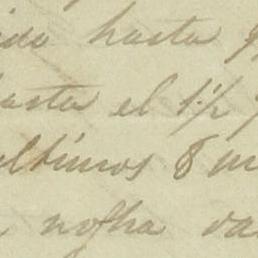 ido hasta q
asta el 1½ y
ultimos 8 m
no ha va